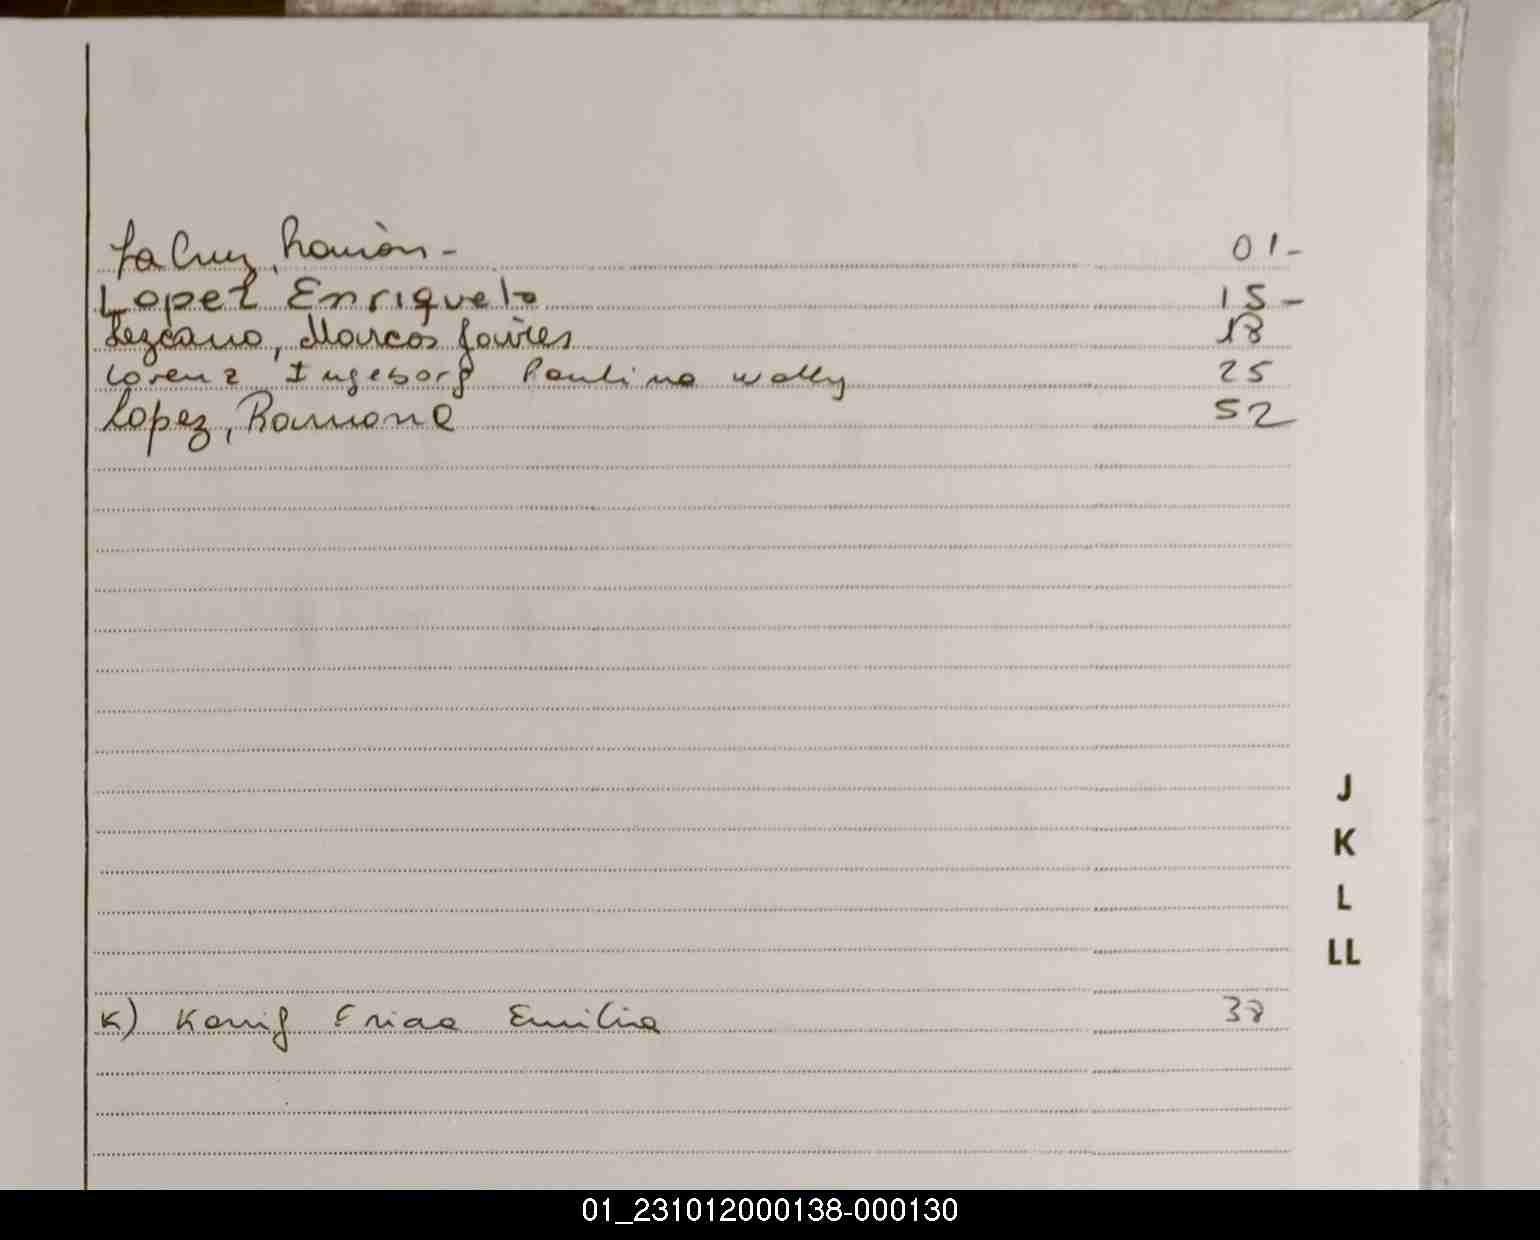 La Cruz, Ramón - 01-
Lopez Enriqueta 15-
Lezcano, Marcos Javier 18
Lorenz Ingeborg Paulina Wally 25
Lopez, Ramona 52
J
K
L
LL
K) Konig Emilia 38
01_231012000138-000130